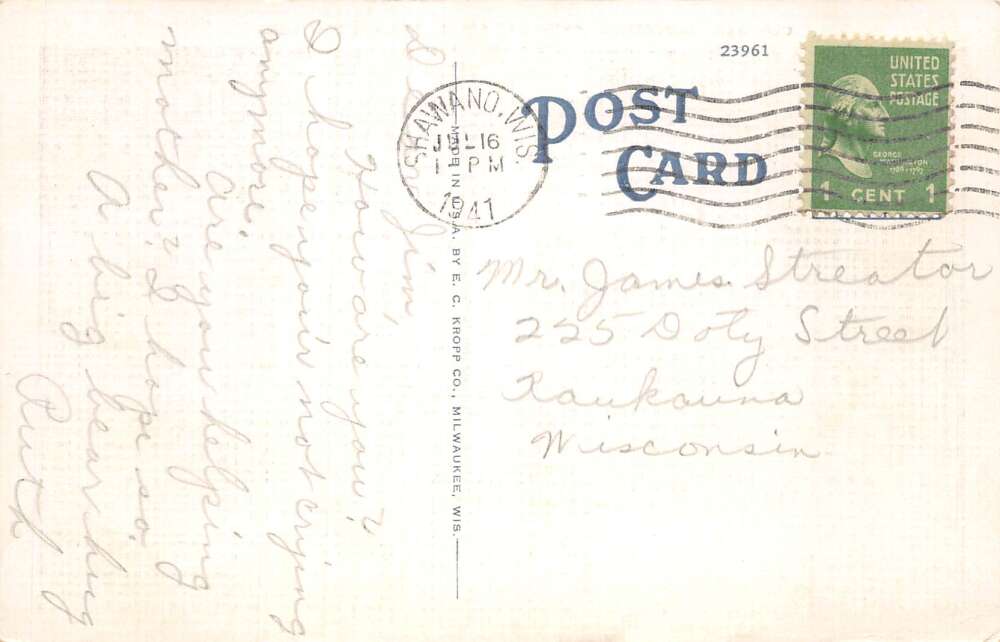 Dear Jim,
How are you?
I hope you're not crying
anymore.
Are you helping
mother? I hope so.
A big bear hug
Ruth
MADE IN U.S.A. BY E. C. KROPP CO., MILWAUKEE, WIS.
23961
POST
CARD
SHAWANO, WIS.
JUL 16
1 PM
1941
UNITED
STATES
POSTAGE
GEORGE
WASHINGTON
1789-1797
1 CENT 1
Mr. James Streator
225 Doty Street
Kaukauna
Wisconsin